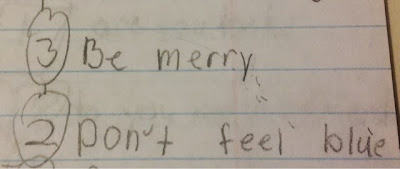 3 Be merry
2 Don't feel blue